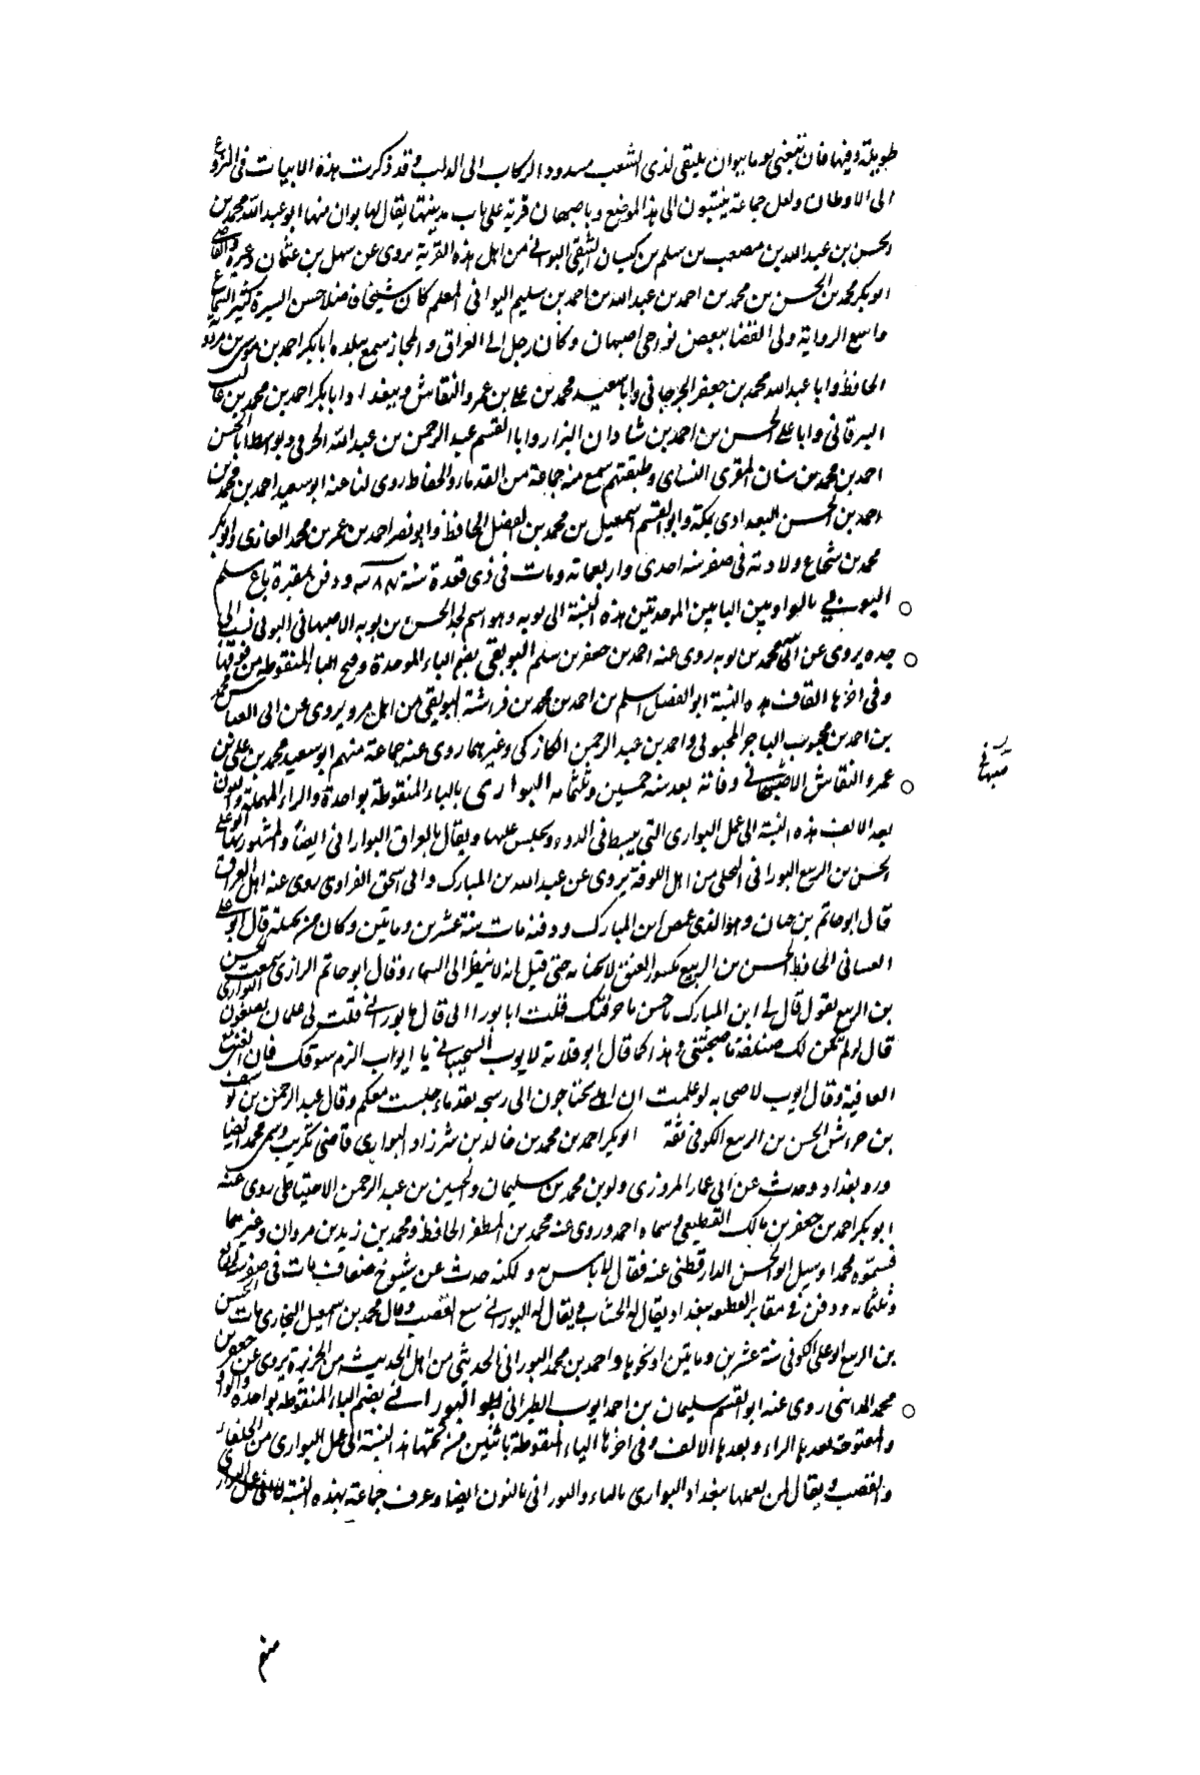 طويلة وفيها فان تبغني يوما ببوان يلتقي لذى الشعب مسدود الركاب الى الدلب وقد ذكرت هذه الابيات فى النزوع
الى الاوطان ولعل جماعة ينتسبون الى هذا الموضع وباصبهان قرية على باب مدينتها يقال لها بوان منها ابو عبد الله محمد بن
الحسن بن عبد الله بن مصعب بن سلم بن كيسان الثقفى البوانى من اهل هذه القرية يروى عن سهل بن عثمان وغيره والقاضى
ابو بكر محمد بن الحسن بن محمد بن احمد بن عبد الله بن احمد بن سليم البوانى المعلم كان شيخا فاضلا حسن السيرة كثير السماع
واسع الرواية ولى القضا ببعض نواحى اصبهان وكان رحل الى العراق والحجاز سمع ببلده ابا بكر احمد بن موسى بن مردويه
الحافظ وابا عبد الله محمد بن جعفر الجرجانى وابا سعيد محمد بن على بن عمرو النقاش وببغداد ابا بكر احمد بن محمد بن غالب
البرقانى وابا على الحسن بن احمد بن شاذان البزار وابا القسم عبد الرحمن بن عبد الله الحرفى وبواسط ابا الحسن
احمد بن محمد بن سنان المقرى النساى وطبقتهم سمع منه جماعة من القدماء والحفاظ روى لنا عنه ابو سعيد احمد بن محمد بن
احمد بن الحسن البغدادى بمكة وابو القسم اسمعيل بن محمد بن الفضل الحافظ وابو نصر احمد بن عمر بن محمد الغازى وابو بكر
محمد بن شجاع ولادته فى صفر سنه احدى واربعمائه ومات فى ذى قعدة سنة ٤٨٤ ودفن بمقبرة باغ سلم
البوبى بالواو بين البايين الموحدتين هذه النسبة الى بوبه وهو اسم لجد الحسن بن بوبه الاصبهانى البوبى نسب الى
جده يروى عن محمد بن بوبه روى عنه احمد بن جعفر بن سلم البوبقى بضم الباء الموحدة وفتح البا المنقوطة من فوقها
وفى اخرها القاف هذه النسبة ابو الفضل اسلم بن احمد بن محمد بن فراشة البوبقى من اهل مرو يروى عن ابى العباس محمد
بن احمد بن محبوب التاجر المحبوبى واحمد بن عبد الرحمن الكازكى وغيرهما روى عنه جماعة منهم ابو سعيد محمد بن على بن
عمرو النقاش الاصبهانى وفاته بعد سنه خمسين وثلثمائه البوارى بالباء المنقوطة بواحدة والراء المهملة والنون
بعد الالف هذه النسبة الى عمل البوارى التى يبسط فى الدور ويجلس عليها ويقال بالعراق البوارانى ايضا والمشهور بها ابو على
الحسن بن الربيع البورانى البجلى من اهل الكوفة يروى عن عبد الله بن المبارك وابى اسحق الفزارى روى عنه اهل العراق
قال ابو حاتم بن حبان وهو الذى غمض ابن المبارك ودفنه مات سنة عشرين وماتين وكان من قال ابو على
الغسانى الحافظ الحسن بن الربيع مكسور العنق لانحنائه حتى قيل انه لا ينظر الى السماء وقال ابو حاتم الرازى سمعت الحسن
بن الربيع يقول قال لى ابن المبارك ما حرفتك فقلت انا بورانى قال ما بورانى قلت لى غلمان يصنعون البوارى
قال لو لم تكن لك صناعة ما صحبتنى وهذا كما قال ابو قلابة لايوب السختيانى يا ايوب الزم سوقك فان الغنى مع
العافية وقال ايوب لاصحابه لو علمت ان اهلى يحتاجون الى دسجة بقل ما جلست معكم وقال عبد الرحمن بن يوسف
بن خراش الحسن بن الربيع الكوفى ثقة ابو بكر احمد بن محمد بن خالد بن شيرزاد البوارى قاضى تكريت ويسمى محمد ايضا
ورد بغداد وحدث عن ابى عمار المروزى ولوين محمد بن سليمان والحسين بن عبد الرحمن الاحتياطى روى عنه
ابو بكر احمد بن جعفر بن مالك القطيعى وسماه احمد وروى عنه محمد بن المظفر الحافظ ومحمد بن زيد بن مروان وغيرهما
فسموه محمدا وسيل ابو الحسن الدارقطنى عنه فقال لا باس به ولكنه حدث عن شيوخ ضعاف مات فى صفر
وثلثمائه ودفن فى مقابر ببغداد يقال له ويقال له البورانى القصب وقال محمد بن اسمعيل البخارى مات الحسن
بن الربيع ابو على الكوفى سنة عشرين وماتين او نحوها واحمد بن محمد البورانى الحديثى من اهل الحديثة من الجزيرة يروى عن جعفر بن
محمد المداينى روى عنه ابو القسم سليمان بن احمد ايوب الطبرانى البورائى بضم الباء المنقوطة بواحدة والواو
والمفتوحة بعدها الراء وبعدها الالف وفى اخرها الياء المنقوطة باثنين من تحتها هذه النسبة الى عمل البوارى من الحلفاء
والقصب ويقال لمن يعملها ببغداد البوارى بالياء والبورانى بالنون ايضا وعرف جماعة بهذه النسبة
منهم